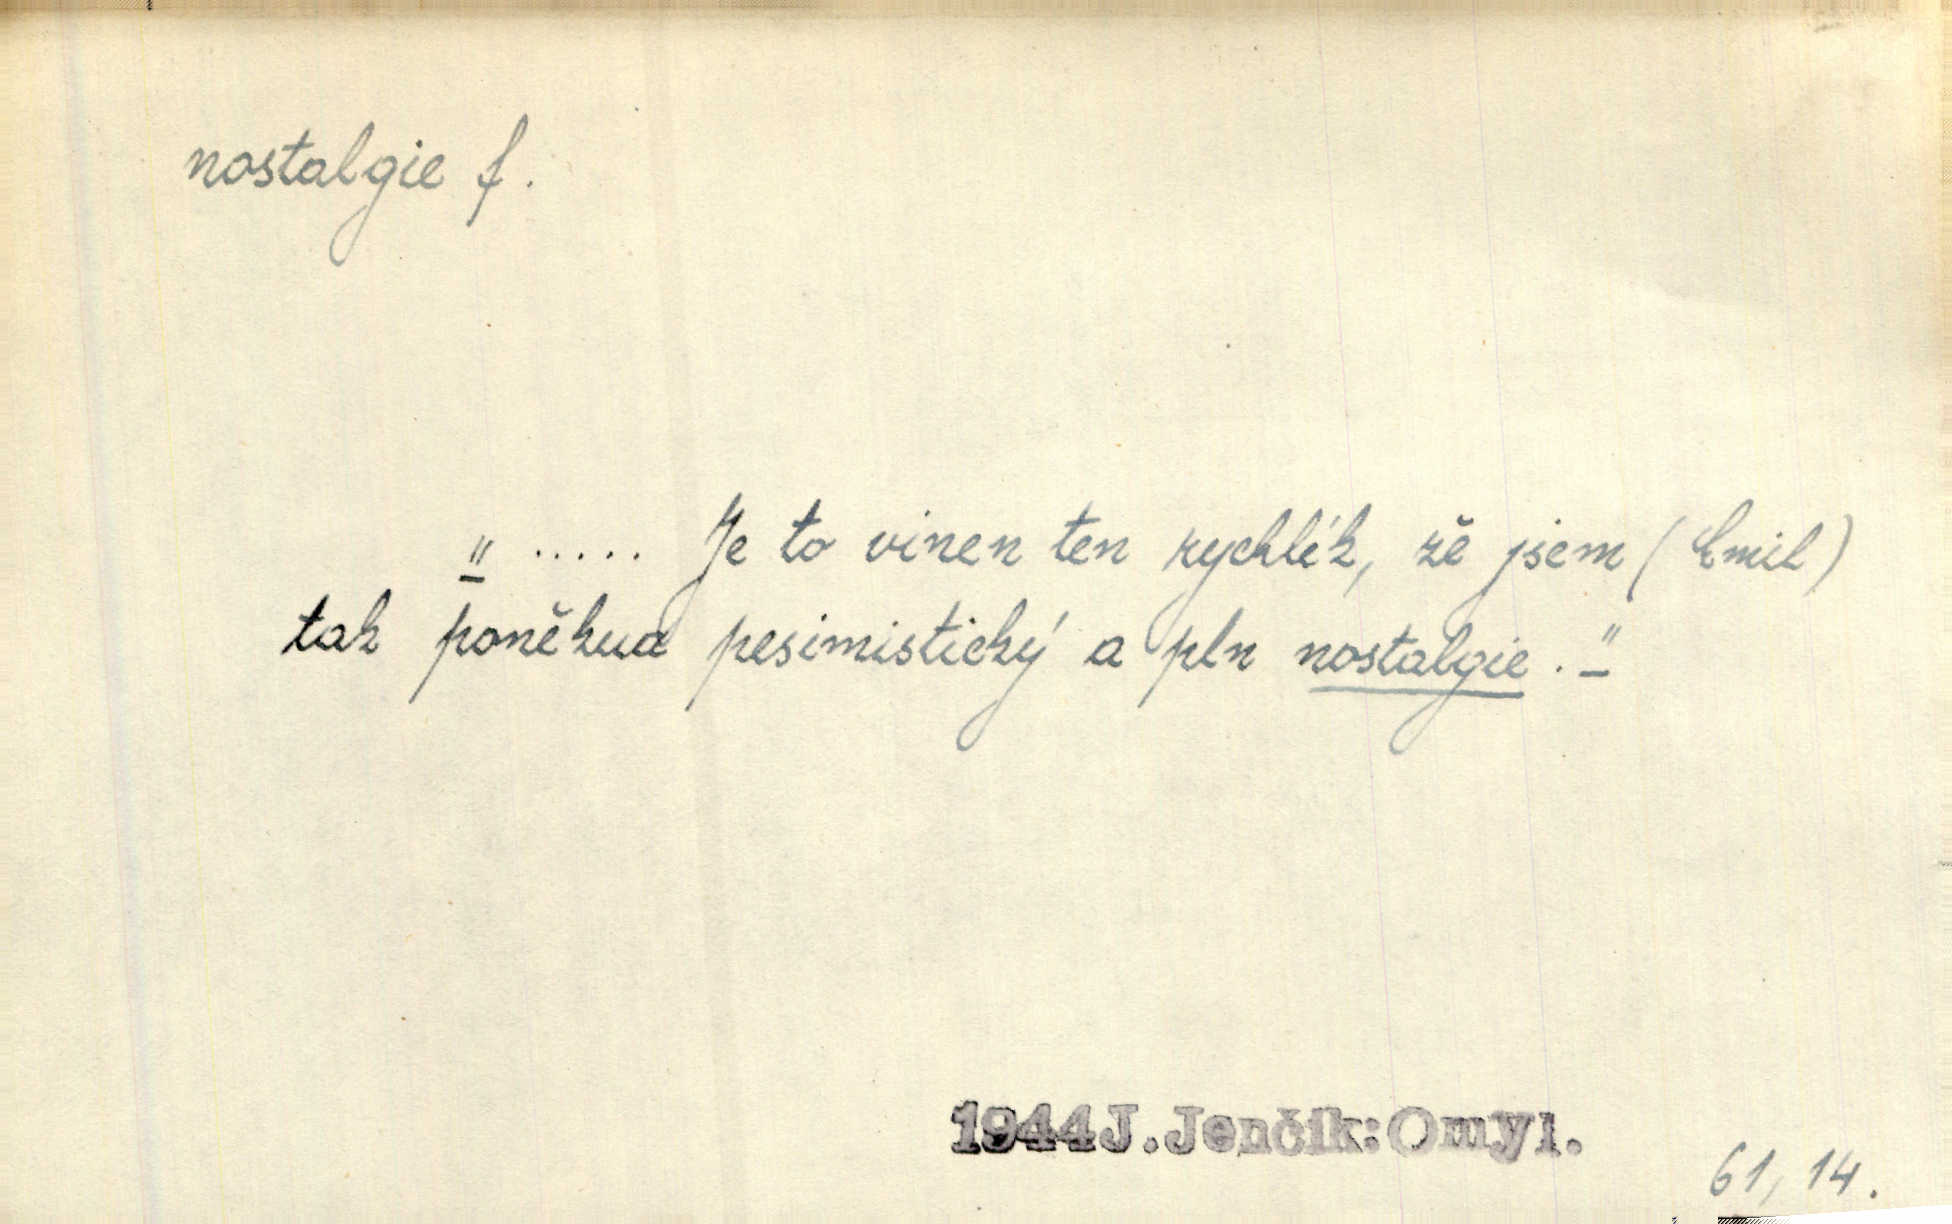 nostalgie f.
" ..... Je to vinen ten rychlík, že jsem (Emil)
tak poněkud pesimistický a pln nostalgie."
1944 J. Jenčík: Omyl.
61, 14.